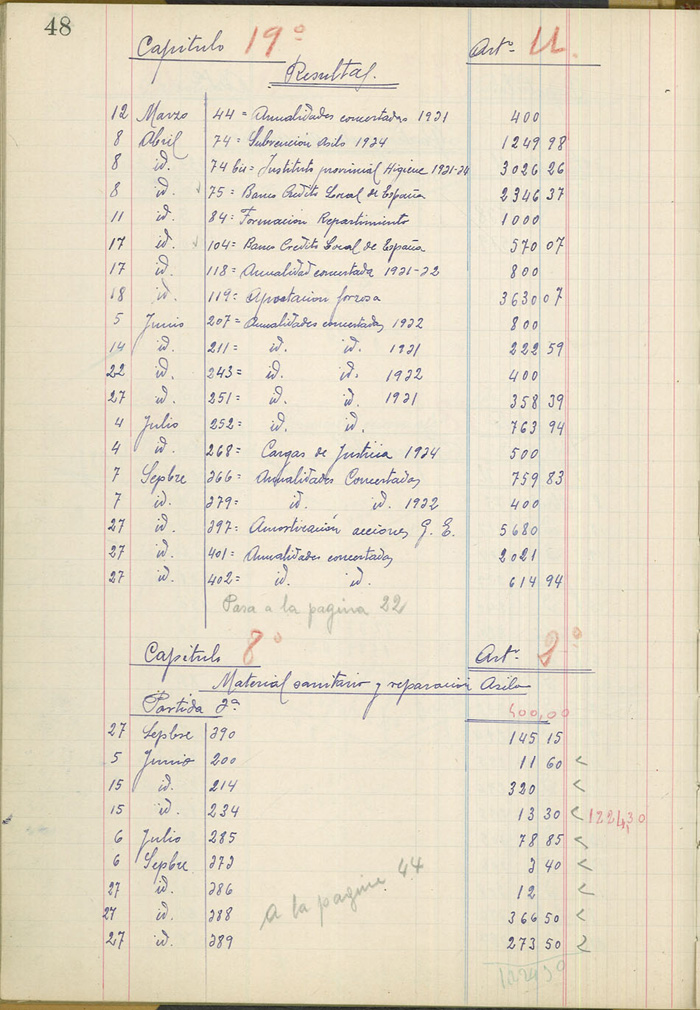 48
Capitulo 19º Artº U.
Resultas.
12 Marzo 44 = Anualidades concertadas 1931 400
8 Abril 74 = Subvención Asilo 1934 1249 98
8 id. 74 bis = Instituto provincial Higiene 1931-34 3026 26
8 id. 75 = Banco Crédito Local de España 2346 37
11 id. 84 = Formacion Repartimiento 1000
17 id. 104 = Banco Credito Local de España 570 07
17 id. 118 = Anualidad concertada 1931-32 800
18 id. 119 = Aportacion forzosa 3630 07
5 Junio 207 = Anualidades concertadas 1932 800
14 id. 211 = id. id. 1931 222 59
22 id. 243 = id. id. 1932 400
27 id. 251 = id. id. 1931 358 39
4 Julio 252 = id. id. 763 94
4 id. 268 = Cargas de Justicia 1934 500
7 Sepbre 366 = Anualidades Concertadas 759 83
7 id. 379 = id. id. 1932 400
27 id. 397 = Amortización acciones G. E. 5680
27 id. 401 = Anualidades concertadas 2021
27 id. 402 = id. id. 614 94
Pasa a la pagina 22
Capitulo 8º Artº
Material sanitario y reparación Asilo
Partida 3ª 500,00
27 Sepbre 390 145 15
5 Junio 200 11 60 <
15 id. 214 320 <
15 id. 234 13 30 < 1224,30
6 Julio 285 78 85 <
6 Sepbre 373 3 40 <
27 id. 386 12 <
27 id. 388 366 50 <
27 id. 389 273 50 <
A la pagina 44